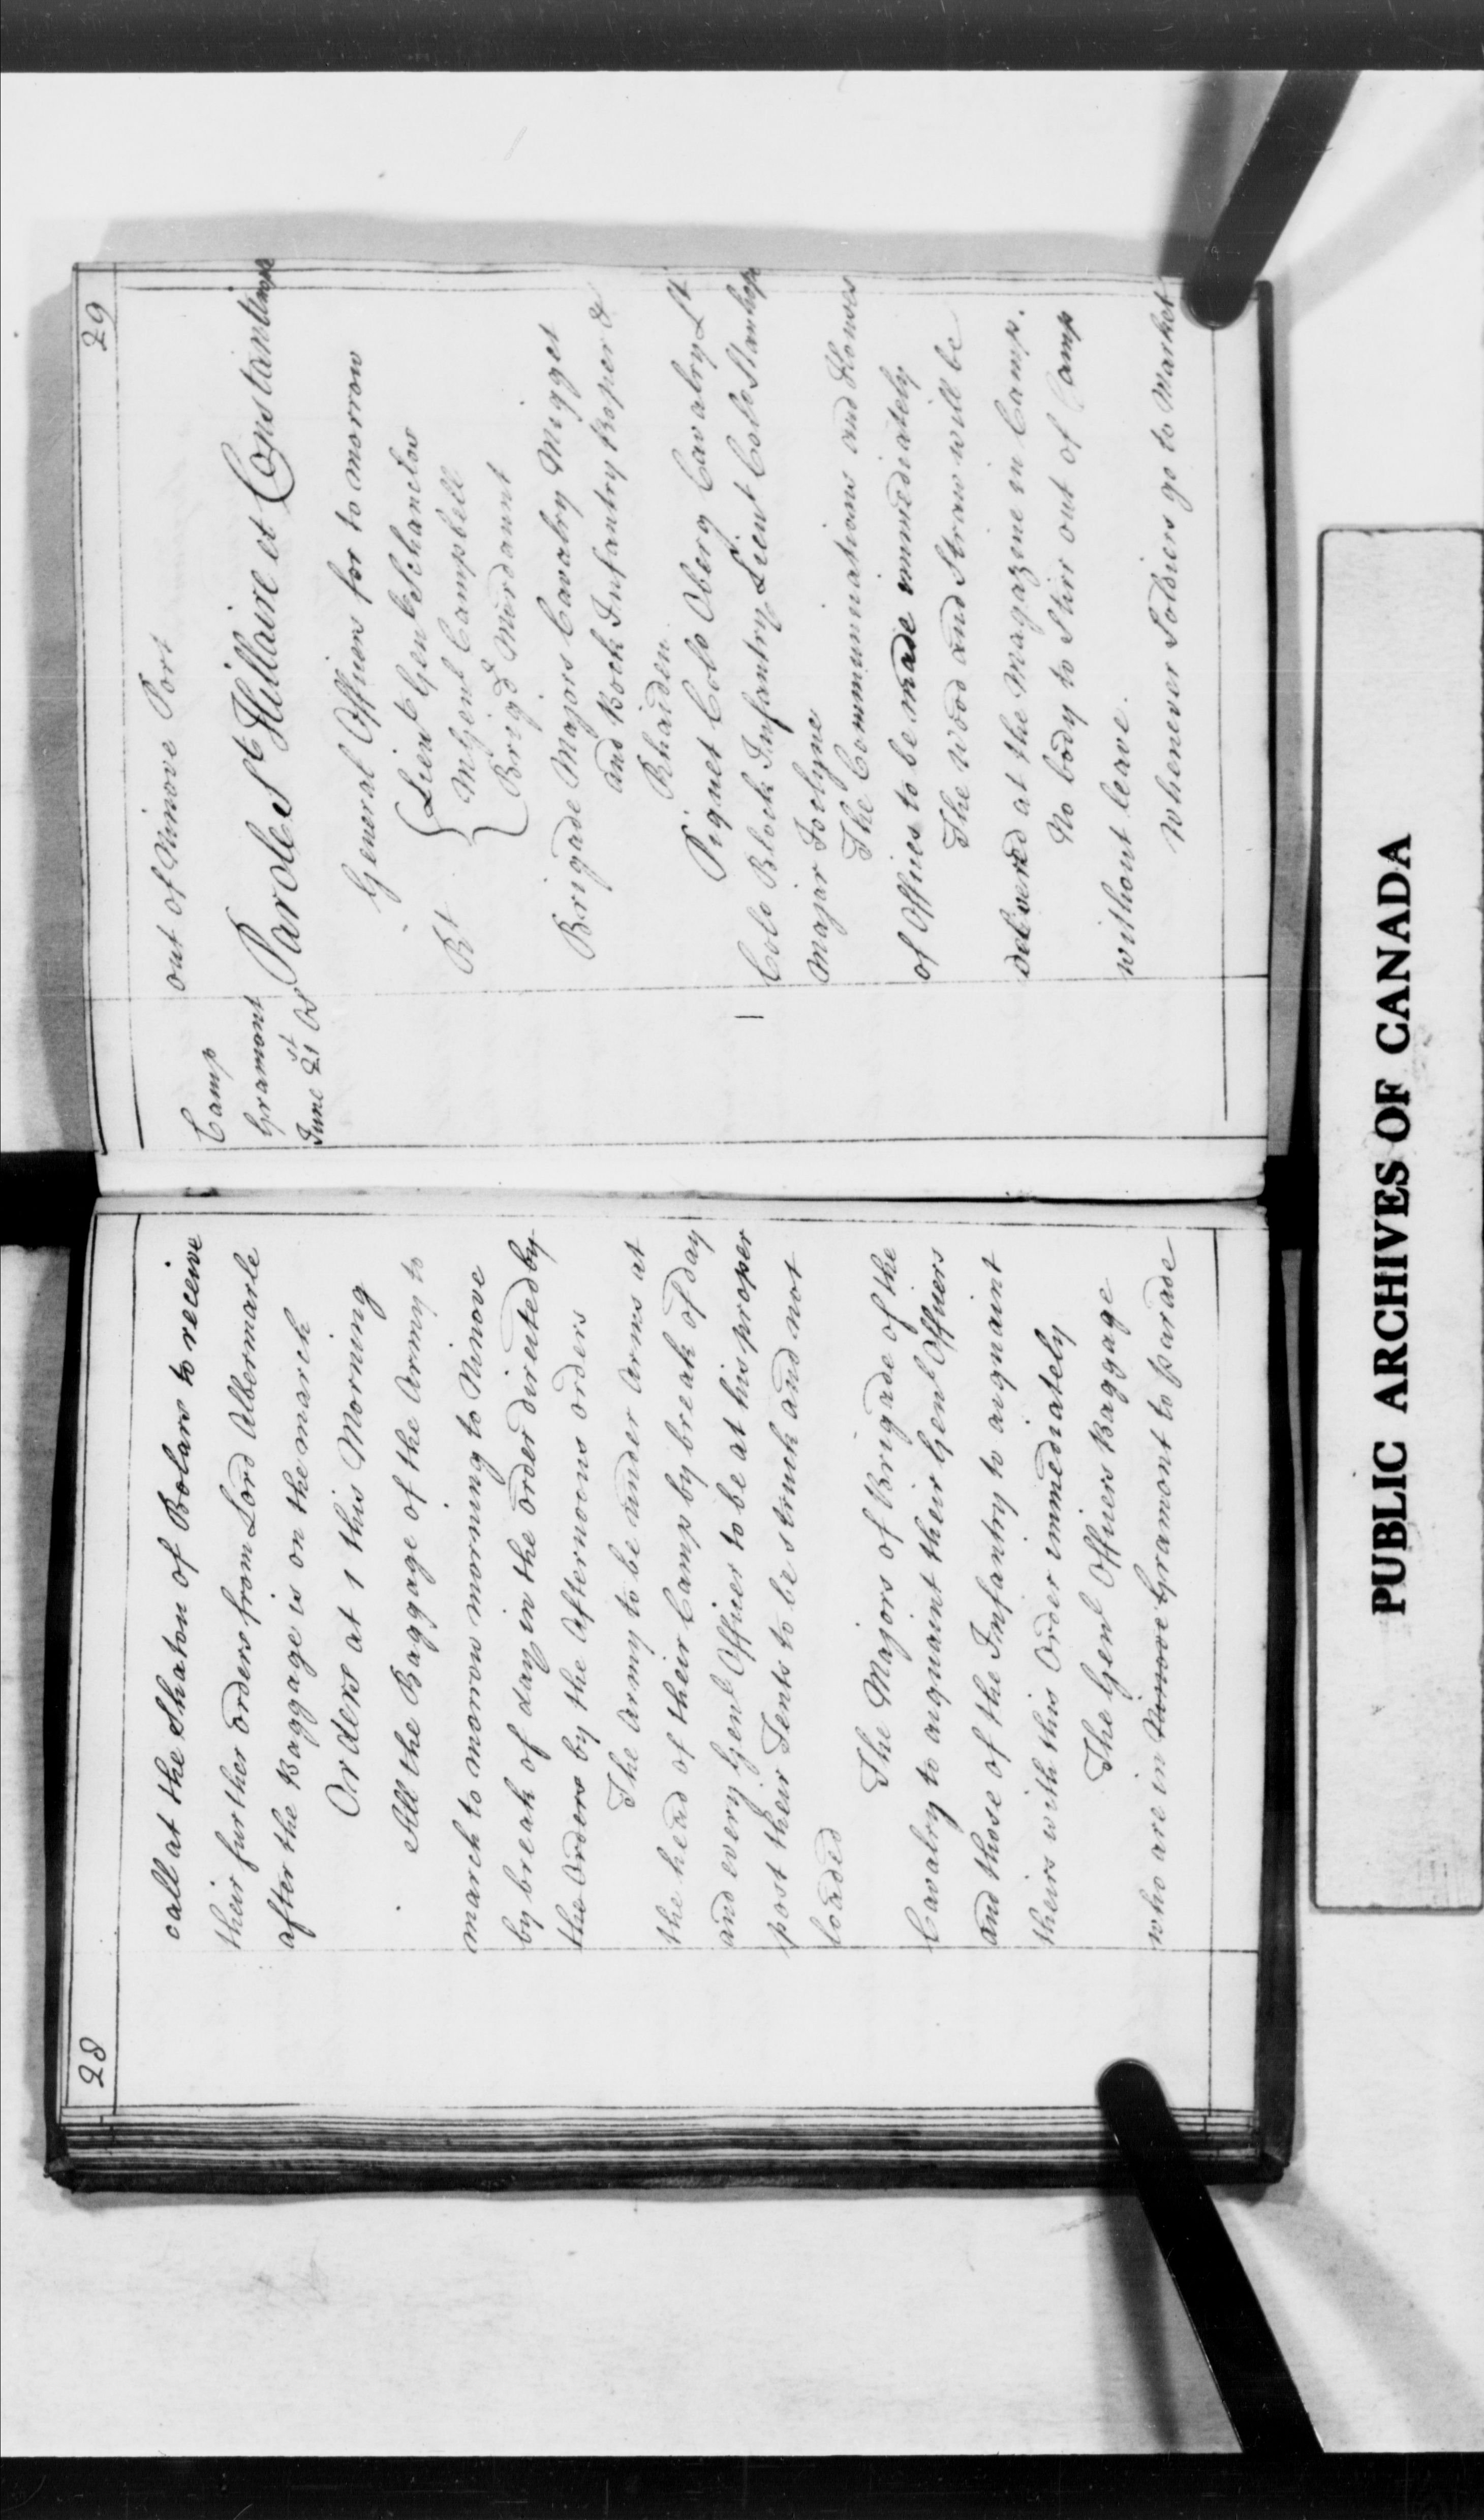 28
call at the Shaton of Bolare to receive
their further orders from Lord Albermarle
after the Baggage is on the march
Orders at 1 this Morning
All the Baggage of the Army to
march to morrow morning to Ninove
by break of day in the order directed by
the Orders by the Afternoons orders
The Army to be under Arms at
the head of their Camp by break of day
and every Genl Officer to be at his proper
post their Tents to be struck and not
loaded
The Majors of Brigade of the
Cavalry to aiquaint their Genl Officers
and those of the Infantry to aiquaint
theirs with this Order immediately
The Genl Officers Baggage
who are in Ninove Gramont to parade
29
out of Ninove Port
Camp
Gramont
June 21st OS
Parole St Hillaire et Constantinople
General Officers for to morrow
Lieut Genl Schanclos
Bt Mjenl Campbell
Brigd Mordaunt
Brigade Majors Cavalry Migget
and Bock Infantry Roper &
Rhaiden
Piquet Colo Oberg Cavalry Lt
Colo Block Infantry Lieut Colo Stanhope
Major Joclyne
The Communications and Houses
of Offices to be made immediately
The Wood and Straw will be
delivered at the Magazene in Camp.
No body to Stirr out of Camp
without leave.
Whenever Soldiers go to Market
PUBLIC ARCHIVES OF CANADA